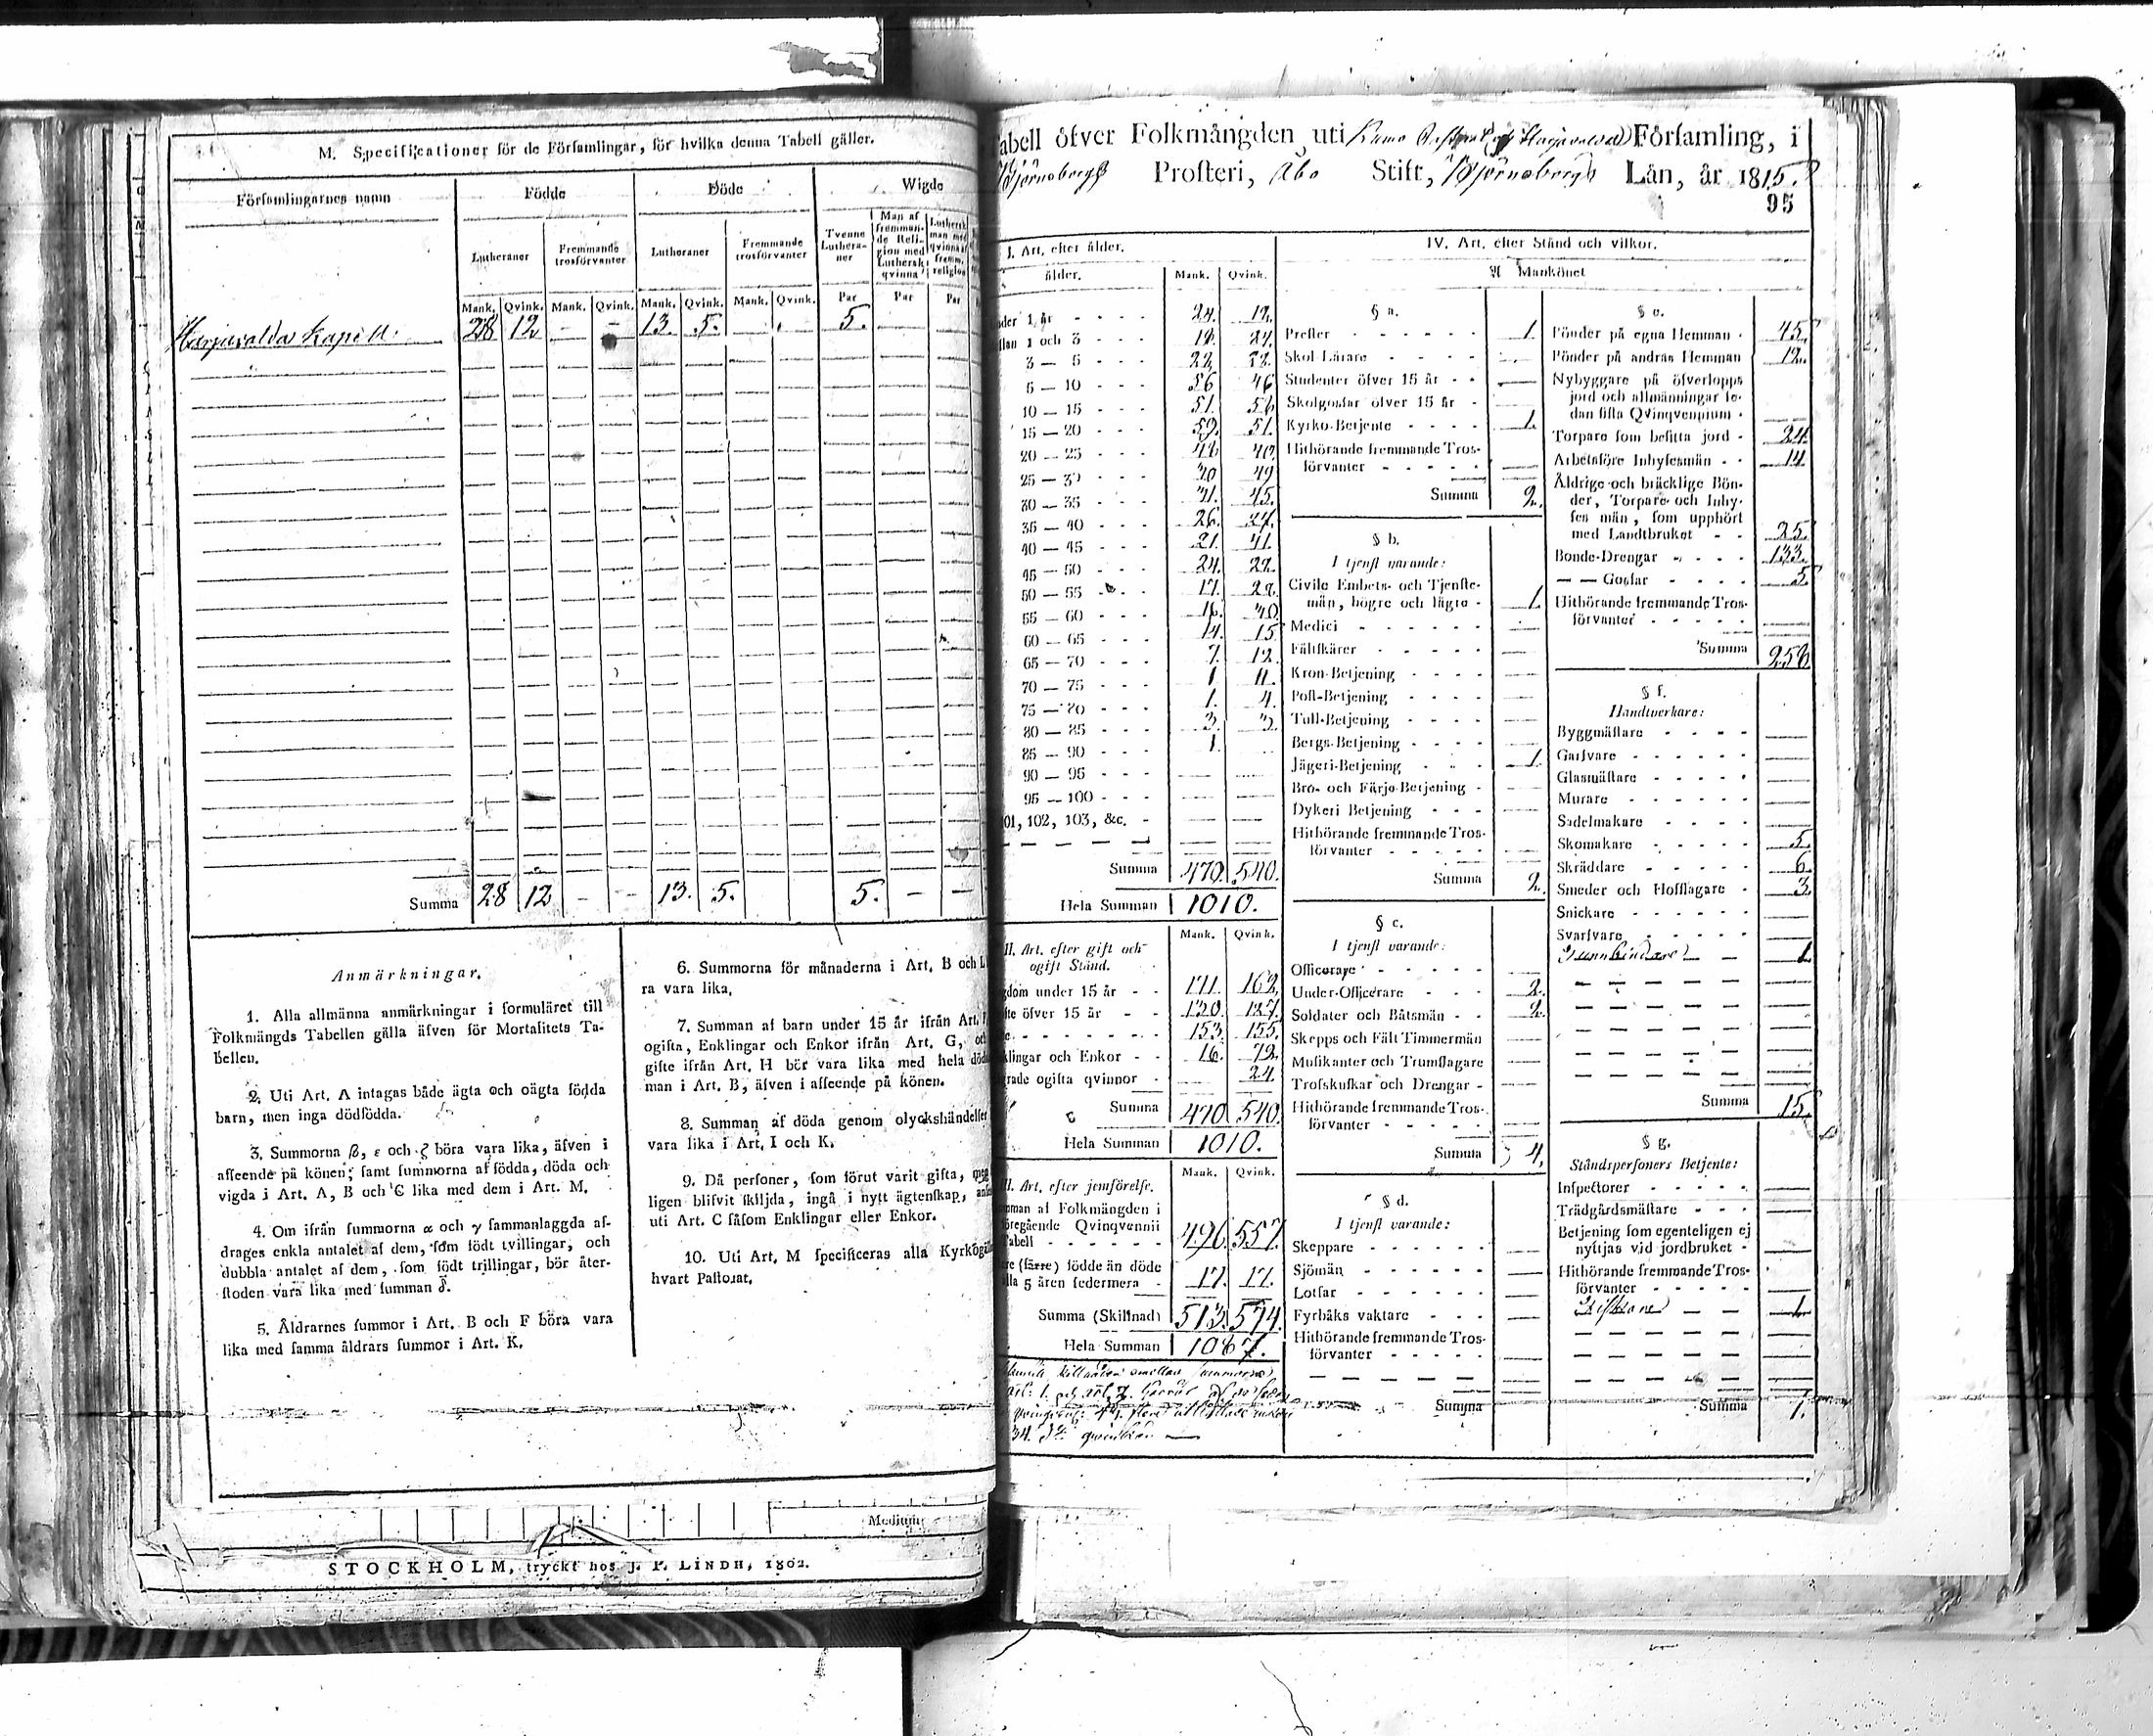 M. Specificationer för de Församlingar, för hvilka denna Tabell gäller.
Församlingarnes namn Födde Döde Wigde
Lutheraner Fremmande trosförvanter Lutheraner Fremmande trosförvanter Tvenne Lutheraner Man af fremmande Religion med Luthersk qvinna Luthersk man med qvinna af fremm. religion
Mank. Qvink. Mank. Qvink. Mank. Qvink. Mank. Qvink. Par Par Par
Harjavalda Kapell 28 12 — — 13. 5. 5.
Summa 28 12 — — 13. 5. 5. — —
Anmärkningar.
1. Alla allmänna anmärkningar i formuläret till
Folkmängds Tabellen gälla äfven för Mortalitets Ta-
bellen.
2. Uti Art. A intagas både ägta och oägta födda
barn, men inga dödfödda.
3. Summorna β, ε och ζ böra vara lika, äfven i
afseende på könen; samt summorna af födda, döda och
vigda i Art. A, B och C lika med dem i Art. M.
4. Om ifrån summorna α och γ sammanlaggda af-
drages enkla antalet af dem, som födt tvillingar, och
dubbla antalet af dem, som födt trillingar, bör åter-
stoden vara lika med summan δ.
5. Åldrarnes summor i Art. B och F böra vara
lika med samma åldrars summor i Art. K.
6. Summorna för månaderna i Art. B och L
ra vara lika.
7. Summan af barn under 15 år ifrån Art.
ogifta, Enklingar och Enkor ifrån Art. G, och
gifte ifrån Art. H bör vara lika med hela döda
man i Art. B, äfven i afseende på könen.
8. Summan af döda genom olyckshändelser
vara lika i Art. I och K.
9. Då personer, som förut varit gifta, men
ligen blifvit skiljda, ingå i nytt ägtenskap,
uti Art. C såsom Enklingar eller Enkor.
10. Uti Art. M specificeras alla Kyrkogä
hvart Pastorat.
Medium
STOCKHOLM, tryckt hos J. P. LINDH, 1802.
abell öfver Folkmängden uti Kumo Harjavalda Församling, i
Björneborgs Prosteri, Åbo Stift, Björneborgs Län, år 1815.
95
I. Art. efter ålder.
ålder. Mank. Qvink.
nder 1 år - - - - 24. 12.
llan 1 och 3 - - - 24.
3 — 5 - - - 22.
5 — 10 - - - 56 46
10 — 15 - - - 51. 56
15 — 20 - - - 59. 51.
20 — 25 - - -
25 — 30 - - - 49
30 — 35 - - - 45.
35 — 40 - - - 26. 27.
40 — 45 - - - 21. 41.
45 — 50 - - - 24. 22.
50 — 55 - - - 17.
55 — 60 - - - 16.
60 — 65 - - - 14. 15
65 — 70 - - - 7. 12.
70 — 75 - - - 1 11.
75 — 80 - - - 1. 4.
80 — 85 - - - 3. 3.
85 — 90 - - - 1.
90 — 95 - - -
95 — 100 - - -
01, 102, 103, &c. -
Summa 470. 540.
Hela Summan 1010.
Mank. Qvink.
II. Art. efter gift och
ogift Stånd.
gdom under 15 år - - 171. 162.
te öfver 15 år - - 130. 127.
153. 155.
klingar och Enkor - - 16. 72.
grade ogifta qvinnor - 24.
Summa 470 540.
Hela Summan 1010.
Mank. Qvink.
II. Art. efter jemförelse.
mman af Folkmängden i
öregående Qvinqvennii
Tabell - - - - - - 496. 557.
re (färre) födde än döde
lla 5 åren sedermera - 17. 17.
Summa (Skillnad) 513. 574.
Hela Summan 1087.
IV. Art. efter Stånd och vilkor.
A Mankönet
§ a.
Prester - - - - - 1.
Skol-Lärare - - - -
Studenter öfver 15 år - -
Skolgossar öfver 15 år -
Kyrko-Betjente - - - - 1.
Hithörande fremmande Tros-
förvanter - - - - -
Summa 2.
§ b.
I tjenst varande:
Civile Embets- och Tjenste-
män, högre och lägre - 1.
Medici - - - - - -
Fältskärer - - - - -
Kron-Betjening - - - -
Post-Betjening - - - -
Tull-Betjening - - - -
Bergs-Betjening - - - -
Jägeri-Betjening - - - 1.
Bro- och Färje-Betjening -
Dykeri Betjening - - -
Hithörande fremmande Tros-
förvanter - - - - -
Summa 2.
§ c.
I tjenst varande:
Officerare - - - - -
Under-Officerare - - - 2.
Soldater och Båtsmän - - 2.
Skepps och Fält Timmermän
Musikanter och Trumslagare
Trosskuskar och Drengar -
Hithörande fremmande Tros-
förvanter - - - - -
Summa 4.
§ d.
I tjenst varande:
Skeppare - - - - - -
Sjömän - - - - - -
Lotsar - - - - - -
Fyrbåks vaktare - - -
Hithörande fremmande Tros-
förvanter - - - - -
Summa
§ e.
Bönder på egna Hemman - 45.
Bönder på andras Hemman 12.
Nybyggare på öfverlopps
jord och allmänningar se-
dan sista Qvinqvennium -
Torpare som besitta jord - 24.
Arbetsföre Inhysesmän - - 14.
Åldrige och bräcklige Bön-
der, Torpare och Inhy-
ses män, som upphört
med Landtbruket - - 25.
Bonde-Drengar - - - - 133.
— — Gossar - - - - 3.
Hithörande fremmande Tros-
förvanter - - - - -
Summa 256.
§ f.
Handtverkare:
Byggmästare - - - -
Garfvare - - - - - -
Glasmästare - - - - -
Murare - - - - - -
Sadelmakare - - - -
Skomakare - - - - - 5.
Skräddare - - - - - 6.
Smeder och Hofslagare - 3.
Snickare - - - - - -
Svarfvare - - - - - -
Tunnbindare — — 1.
Summa 15.
§ g.
Ståndspersoners Betjente:
Inspectorer - - - - -
Trädgårdsmästare - - -
Betjening som egenteligen ej
nyttjas vid jordbruket -
Hithörande fremmande Tros-
förvanter - - - - -
— — 1.
Summa 1.